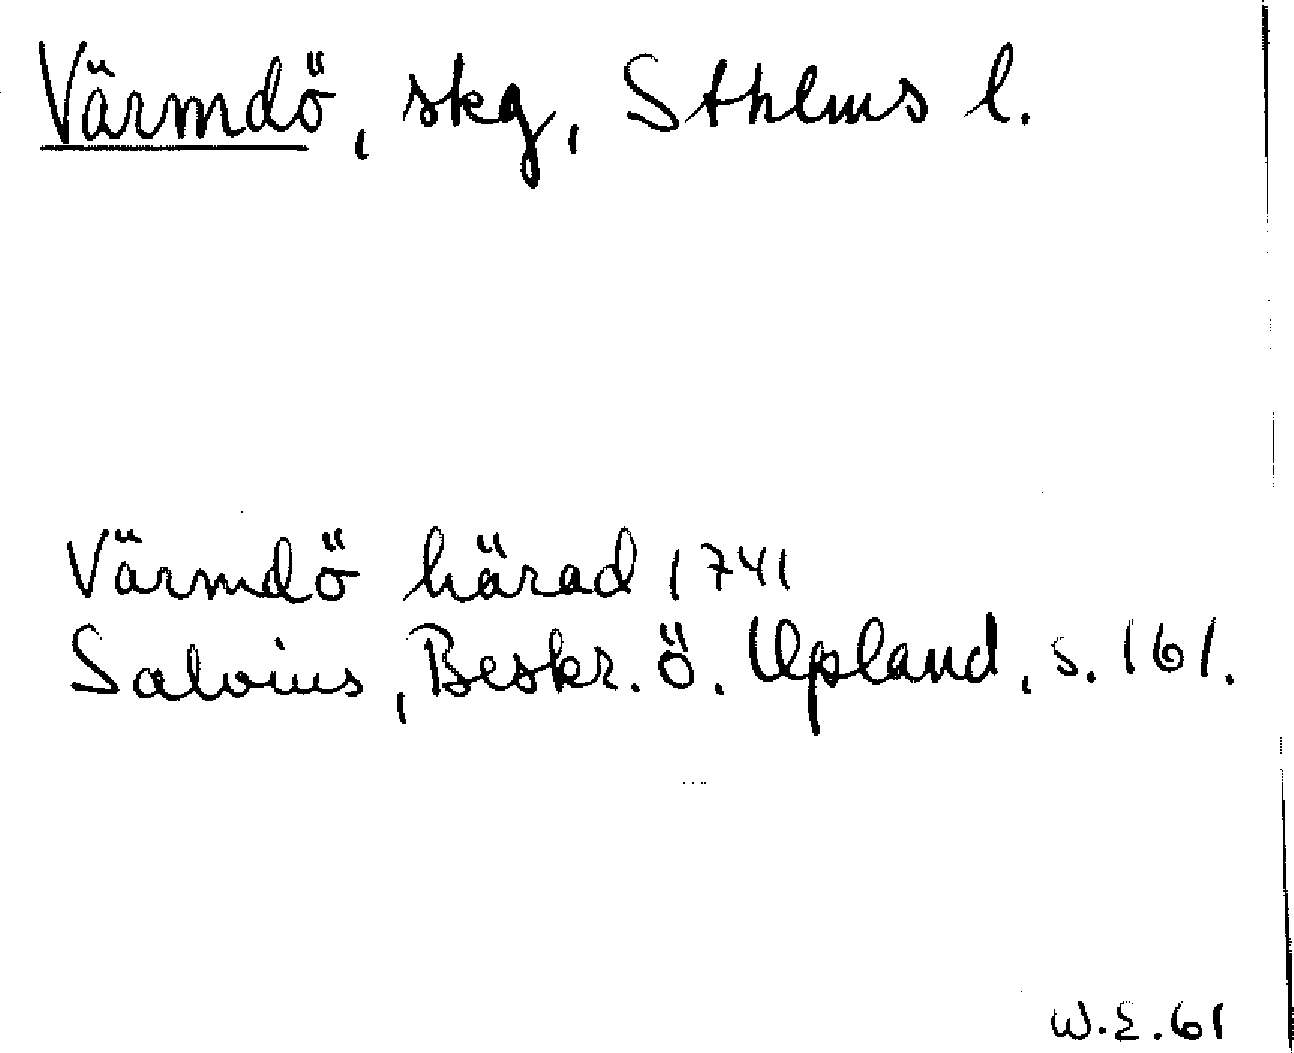 Värmdö, skg, Sthlms l.
Värmdö härad 1741
Salvius, Beskr. ö. Upland, s. 161.
W.E. 61